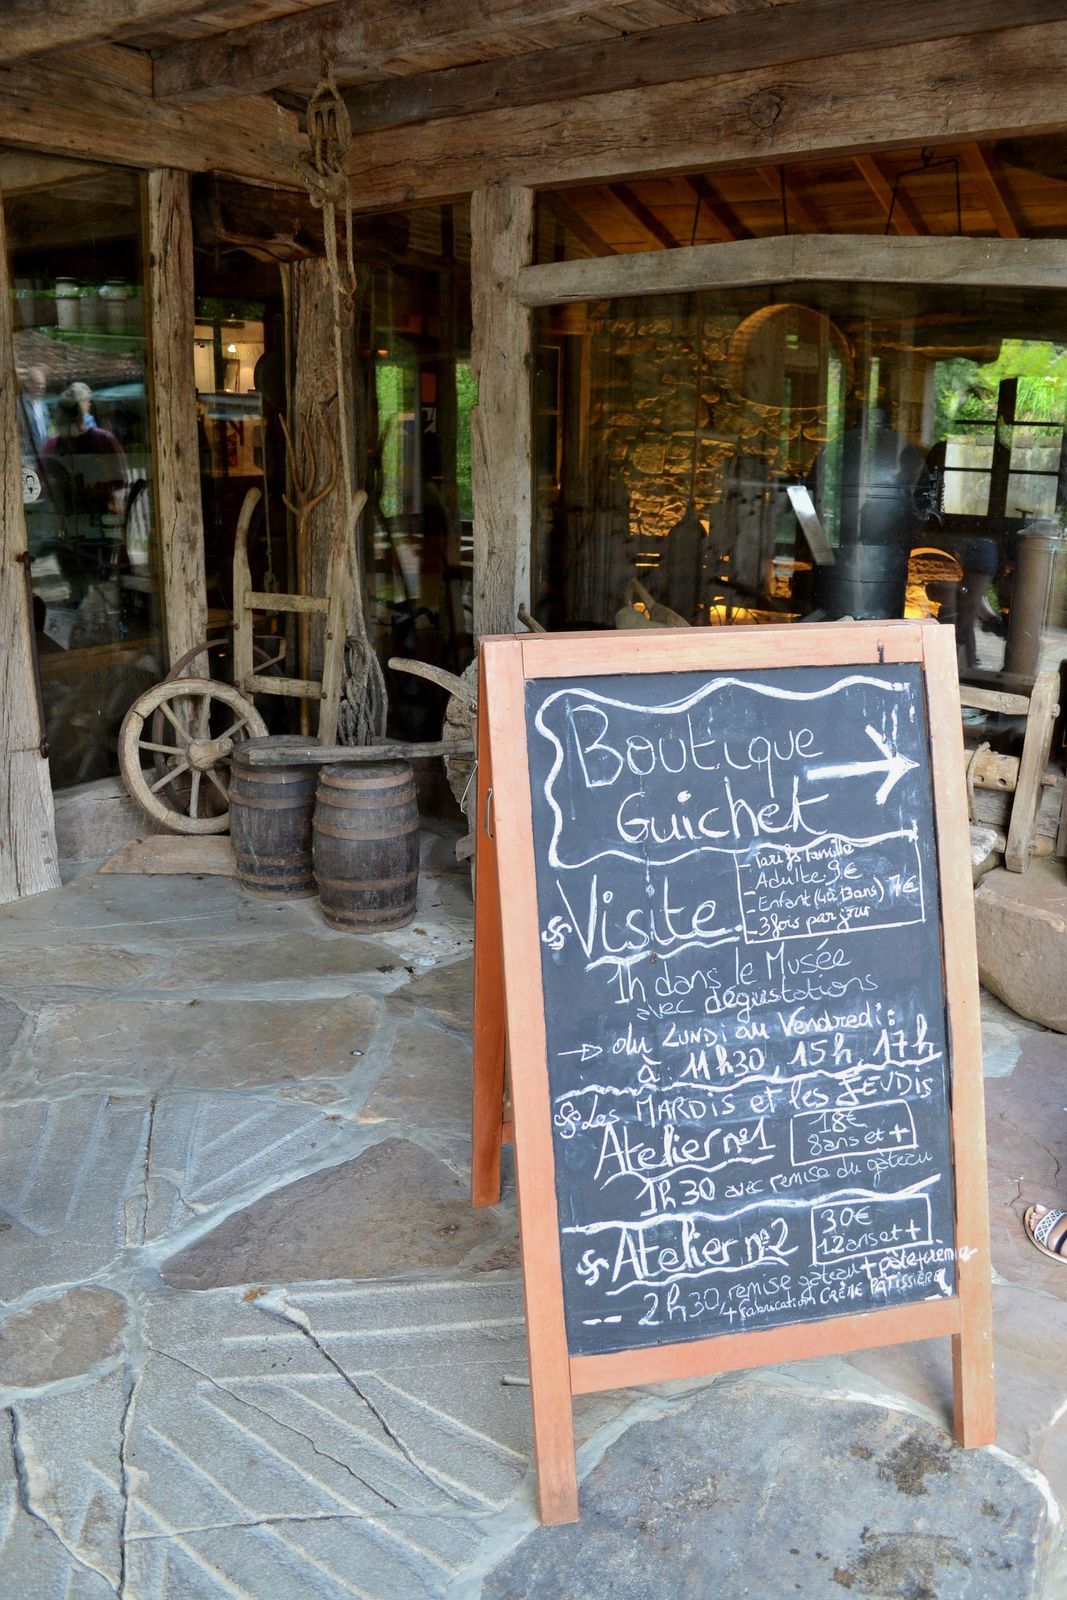 Boutique
Guichet
Visite
- Tarifs famille
- Adulte 9€
- Enfant (4à13ans) 7€
- 3 fois par jour
1h dans le Musée
avec dégustations
du LUNDI au Vendredi:
à 11h30, 15h, 17h
Les MARDIS et les JEUDIS
Atelier n°1
18€
8ans et +
1h30 avec remise du gâteau
Atelier n°2
30€
12ans et +
2h30 remise gâteau +
+ Fabrication CRÈME PÂTISSIÈRE